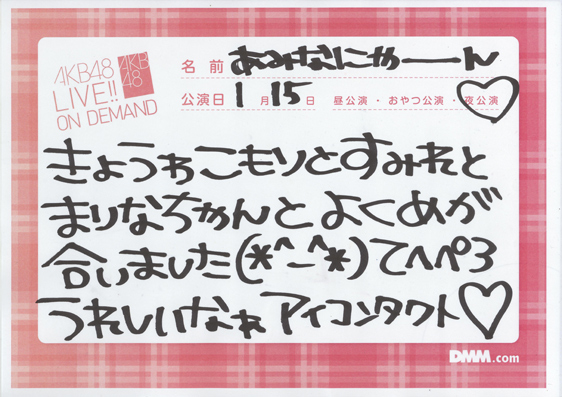 AKB48
LIVE!!
ON DEMAND
AKB
48
名 前 あみなにゃーん
公演日 1 月 15 日 昼公演・おやつ公演・夜公演
きょうゎこもりとすみれと
まりなちゃんとよくめが
合いました(*^_^*)てへぺろ
うれしいなぁ アイコンタクト♡
DMM.com